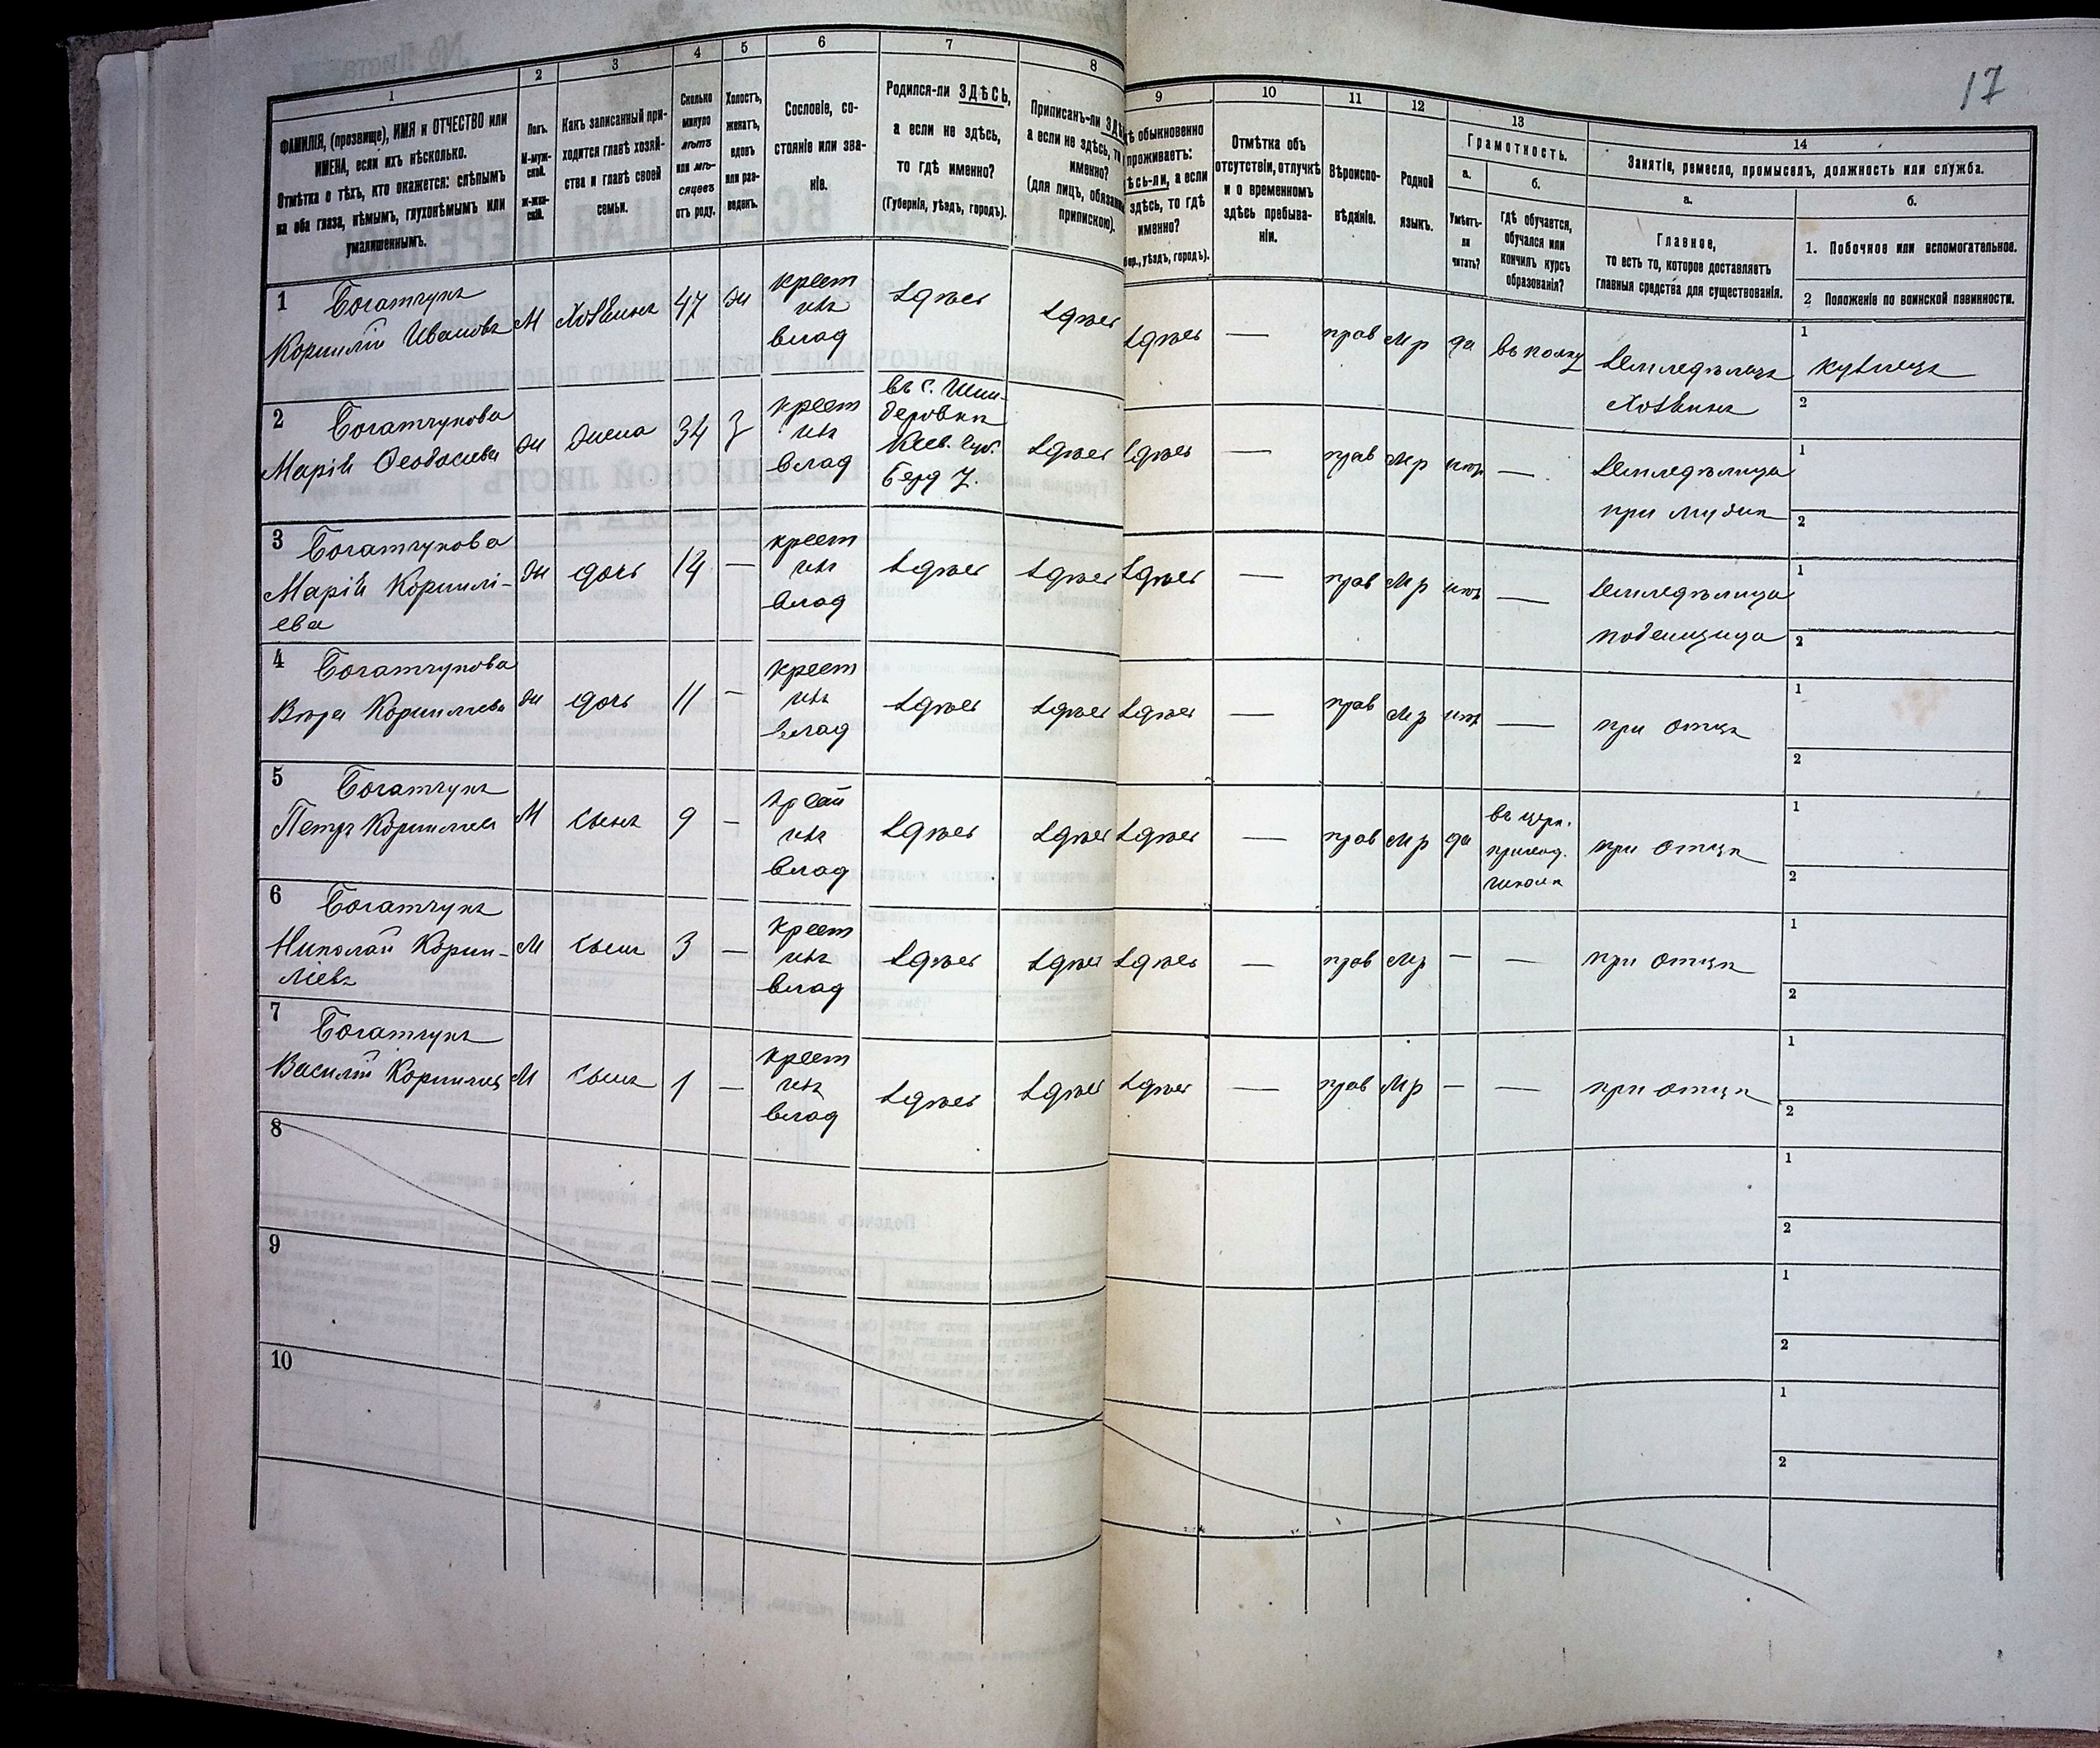 17
1
2
3
4
5
6
7
8
ФАМИЛІЯ, (прозвище), ИМЯ и ОТЧЕСТВО или
ИМЕНА, если ихъ нѣсколько.
Отмѣтка о тѣхъ, кто окажется: слѣпымъ
на оба глаза, нѣмымъ, глухонѣмымъ или
умалишеннымъ.
Полъ.
М-муж-
ской.
ж-жен-
скій.
Какъ записанный при-
ходится главѣ хозяй-
ства и главѣ своей
семьи.
Сколько
минуло
лѣтъ
или мѣ-
сяцевъ
отъ роду.
Холостъ,
женатъ,
вдовъ
или раз-
веденъ.
Сословіе, со-
стояніе или зва-
ніе.
Родился-ли ЗДѢСЬ,
а если не здѣсь,
то гдѣ именно?
(Губернія, уѣздъ, городъ).
Приписанъ-ли
а если не здѣсь,
именно?
(для лицъ,
припискою).
9
10
11
12
13
14
обыкновенно
проживаетъ:
а если
здѣсь, то гдѣ
именно?
уѣздъ, городъ).
Отмѣтка объ
отсутствіи, отлучкѣ
и о временномъ
здѣсь пребыва-
ніи.
Вѣроиспо-
вѣданіе.
Родной
языкъ.
Грамотность.
а.
Умѣетъ-
ли
читать?
б.
гдѣ обучается,
обучался или
кончилъ курсъ
образованія?
Занятіе, ремесло, промыселъ, должность или служба.
а.
Главное,
то есть то, которое доставляетъ
главныя средства для существованія.
б.
1. Побочное или вспомогательное.
2 Положеніе по воинской повинности.
1 Богатчукъ
Корнилій Ивановъ М Хозяинъ 47 ж
крест
изъ
влад
здѣсь здѣсь здѣсь — прав мр да въ полку
Земледѣлецъ
Хозяинъ
1 кузнецъ
2
2 Богатчукова
Марія Ѳеодосіева ж жена 34 з
крест
изъ
влад
въ с.
Кіев. губ.
Берд у.
здѣсь здѣсь — прав мр нѣтъ —
Земледѣлица
при мужѣ
1
2
3 Богатчукова
Марія Корнилі-
ева ж дочь 14 —
крест
изъ
влад
здѣсь здѣсь здѣсь — прав мр нѣтъ —
Земледѣлица
поденщица
1
2
4 Богатчукова
Вѣра Корниліева ж дочь 11 —
крест
изъ
влад
здѣсь здѣсь здѣсь — прав мр нѣтъ — при отцѣ
1
2
5 Богатчукъ
Петръ Корниліевъ М сынъ 9 —
крест
изъ
влад
здѣсь здѣсь здѣсь — прав мр да
въ церк.
приход.
школѣ
при отцѣ
1
2
6 Богатчукъ
Николай Корни-
ліевъ М сынъ 3 —
крест
изъ
влад
здѣсь здѣсь здѣсь — прав мр — — при отцѣ
1
2
7 Богатчукъ
Василій Корниліевъ М сынъ 1 —
крест
изъ
влад
здѣсь здѣсь здѣсь — прав мр — — при отцѣ
1
2
8
1
2
9
1
2
10
1
2